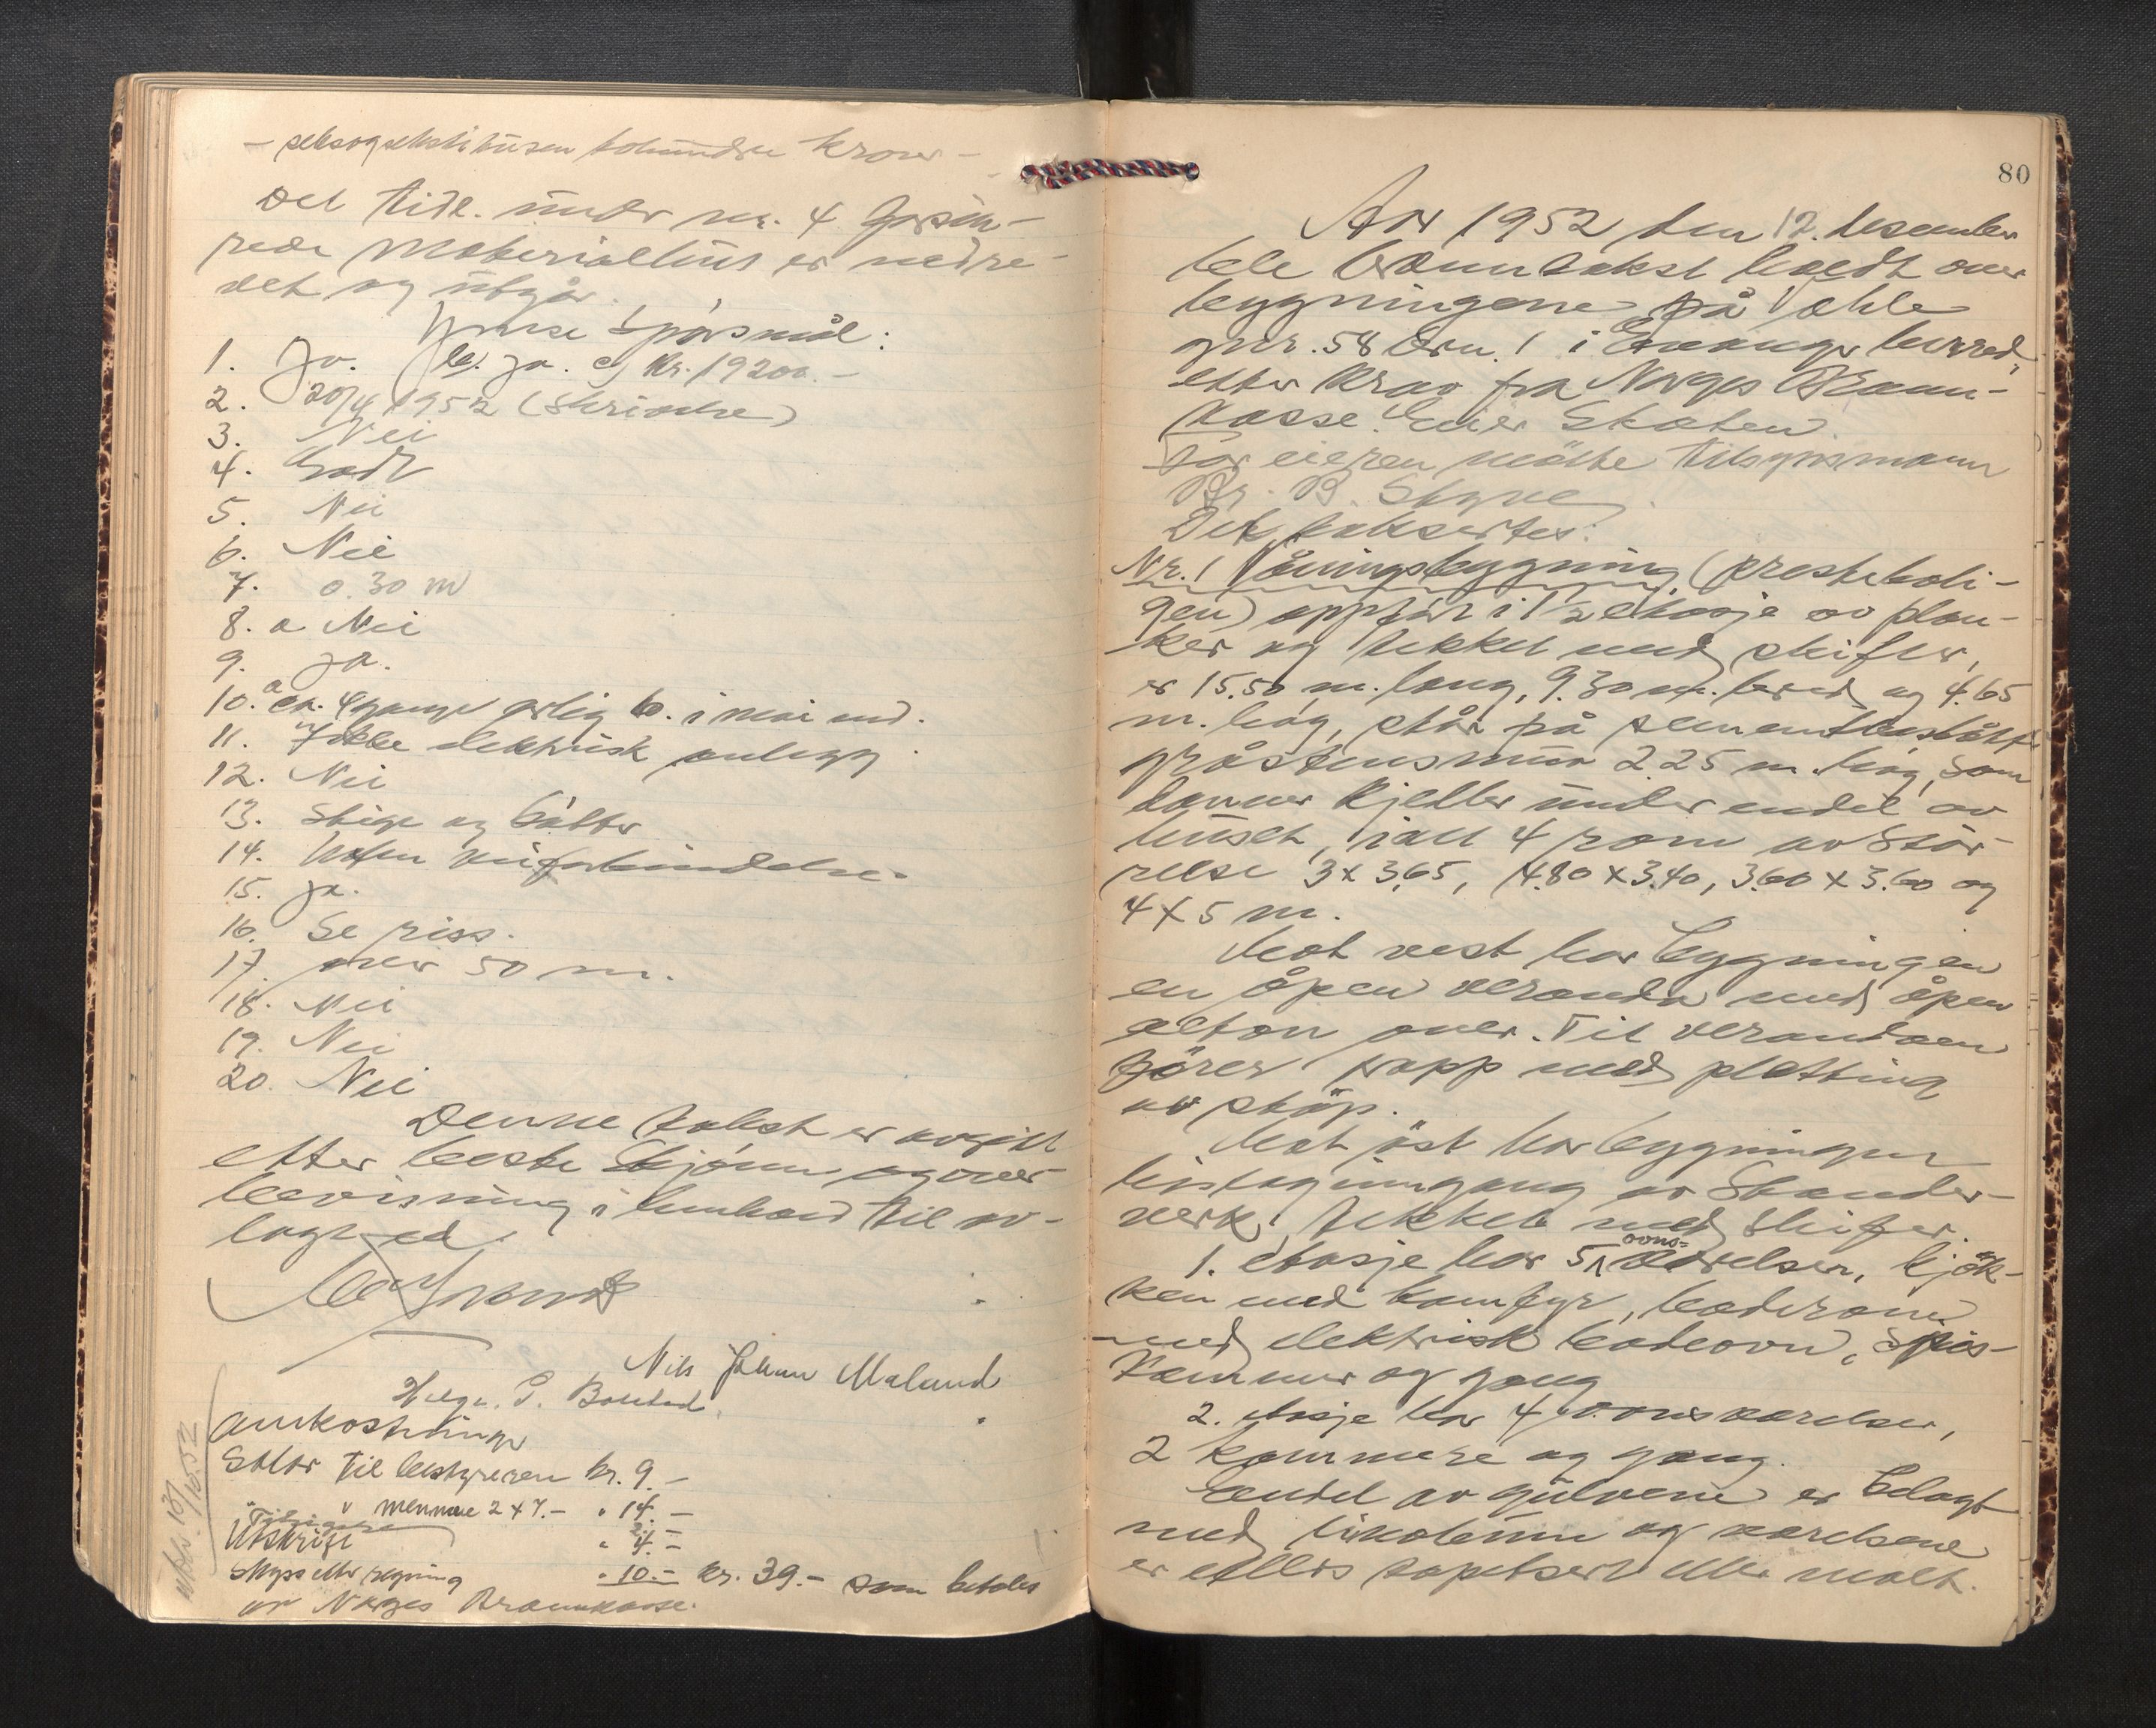 - seksogsekstitusen tohundre kroner -
Det tidl. under nr. 4 forsik-
rede materialhus er nedre-
vet og utgår.
Spørsmål:
1. Ja. b) ja. c) Kr. 19200.-
2. 20/4 1952 (Skrivelse)
3. Nei
4. Godt
5. Nei
6. Nei
7. 0.30 m
8. a Nei
9. Ja.
10. a ca. 4 gange årlig b. i mai md.
11. Ikke elektrisk anlegg.
12. Nei
13. Stige og bøtter
14. Uten veiforbindelse
15. Ja.
16. Se riss.
17. over 50 m.
18. Nei
19. Nei
20. Nei
Denne takst er avgitt
etter beste skjønn og over-
bevisning i henhold til av-
lagt ed.
Nils Johan Maland
Helge G. Bolstad
Omkostninger
Salær til bestyreren kr. 9.-
" " mennene 2 x 7.- " 14.-
Tilsigelse
Utskrift " 4.-
Skyss etter regning " 10.- kr. 39.- som betales
av Norges Brannkasse.
80
År 1952 den 12. desember
ble branntakst holdt over
bygningene på Væhle
gnr. 58 brn. 1 i Evanger herred,
etter krav fra Norges Brann-
kasse. Eier Staten.
For eieren møtte tilsynsmann
Br. B. Styve.
Det takseres:
Nr. 1 Våningsbygning (presteboli-
gen) oppført i 1 1/2 etasje av plan-
ker og tekket med skifer,
er 15.50 m. lang, 9.30 m. bred og 4.65
m. høg, står på sementbestøket
gråsteinsmur 2.25 m. høg, som
danner kjeller under endel av
huset, i alt 4 rom av stør-
relse 3 x 3.65, 4.80 x 3.40, 3.60 x 3.60 og
4 x 5 m.
Mot vest har bygningen
en åpen veranda med åpen
altan over. Til verandaen
fører trapp med platting
av støp.
Mot øst har bygningen
bislaginngang av stender-
verk, tekket med skifer.
1. etasje har 5 ovns-
værelser, kjøk-
ken med komfyr, baderom
med elektrisk badeovn, spis-
kammer og gang
2. etasje har 4 ovnsværelser,
2 kammere og gang.
Endel av gulvene er belagt
med linoleum og værelsene
er ellers tapetsert eller malt.